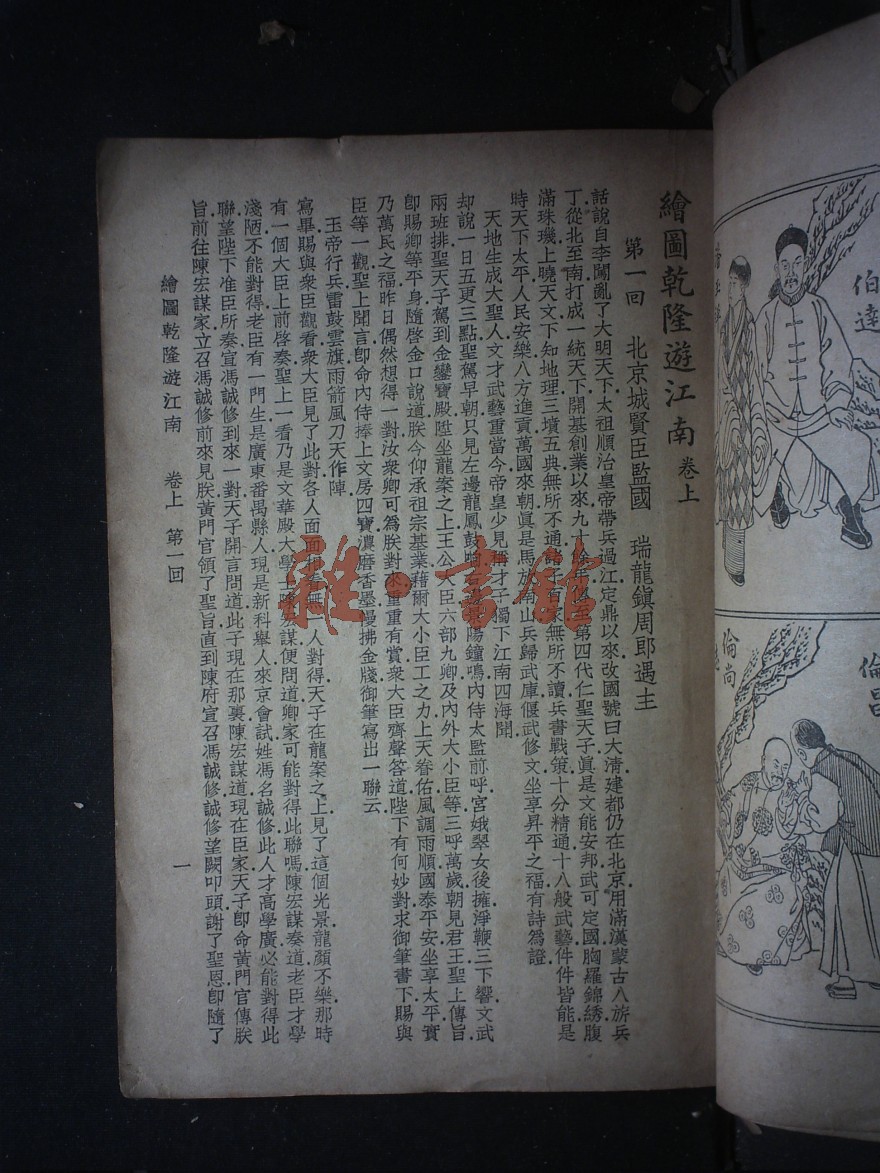 繪圖乾隆遊江南 卷上
第一回 北京城賢臣監國 瑞龍鎮周郎遇主
話說自李闖亂了大明天下太祖順治皇帝帶兵過江定鼎以來改國號曰大清建都仍在北京用滿漢蒙古八旂兵
丁從北至南打成一統天下開基創業以來九十餘年傳至第四代仁聖天子眞是文能安邦武可定國胸羅錦綉腹
滿珠璣上曉天文下知地理三墳五典無所不通諸子百家無所不讀兵書戰策十分精通十八般武藝件件皆能是
時天下太平人民安樂八方進貢萬國來朝眞是馬放南山兵歸武庫偃武修文坐享昇平之福有詩爲證
天地生成大聖人文才武藝重當今帝皇少見稱才子獨下江南四海聞
却說一日五更三點聖駕早朝只見左邊龍鳳鼓响右邊景陽鐘鳴內侍太監前呼宮娥翠女後擁淨鞭三下響文武
兩班排聖天子駕到金鑾寶殿陞坐龍案之上王公大臣六部九卿及內外大小臣等三呼萬歲朝見君王聖上傳旨
卽賜卿等平身隨啓金口說道朕今仰承祖宗基業藉爾大小臣工之力上天眷佑風調雨順國泰平安坐享太平實
乃萬民之福昨日偶然想得一對汝衆卿可爲朕對來重重有賞衆大臣齊聲答道陛下有何妙對求御筆書下賜與
臣等一觀聖上聞言卽命內侍捧上文房四寶濃磨香墨慢拂金牋御筆寫出一聯云
玉帝行兵雷鼓雲旗雨箭風刀天作陣
寫畢賜與衆臣觀看衆大臣見了此對各人面面相看無一人對得天子在龍案之上見了這個光景龍顏不樂那時
有一個大臣上前啓奏聖上一看乃是文華殿大學士陳宏謀便問道卿家可能對得此聯嗎陳宏謀奏道老臣才學
淺陋不能對得老臣有一門生是廣東番禺縣人現是新科舉人來京會試姓馮名誠修此人才高學廣必能對得此
聯望陛下准臣所奏宣馮誠修到來一對天子開言問道此子現在那裏陳宏謀道現在臣家天子卽命黃門官傳朕
旨前往陳宏謀家立召馮誠修前來見朕黃門官領了聖旨直到陳府宣召馮誠修誠修望闕叩頭謝了聖恩卽隨了
繪圖乾隆遊江南 卷上 第一回 一
伯達
倫尚
雜·書館